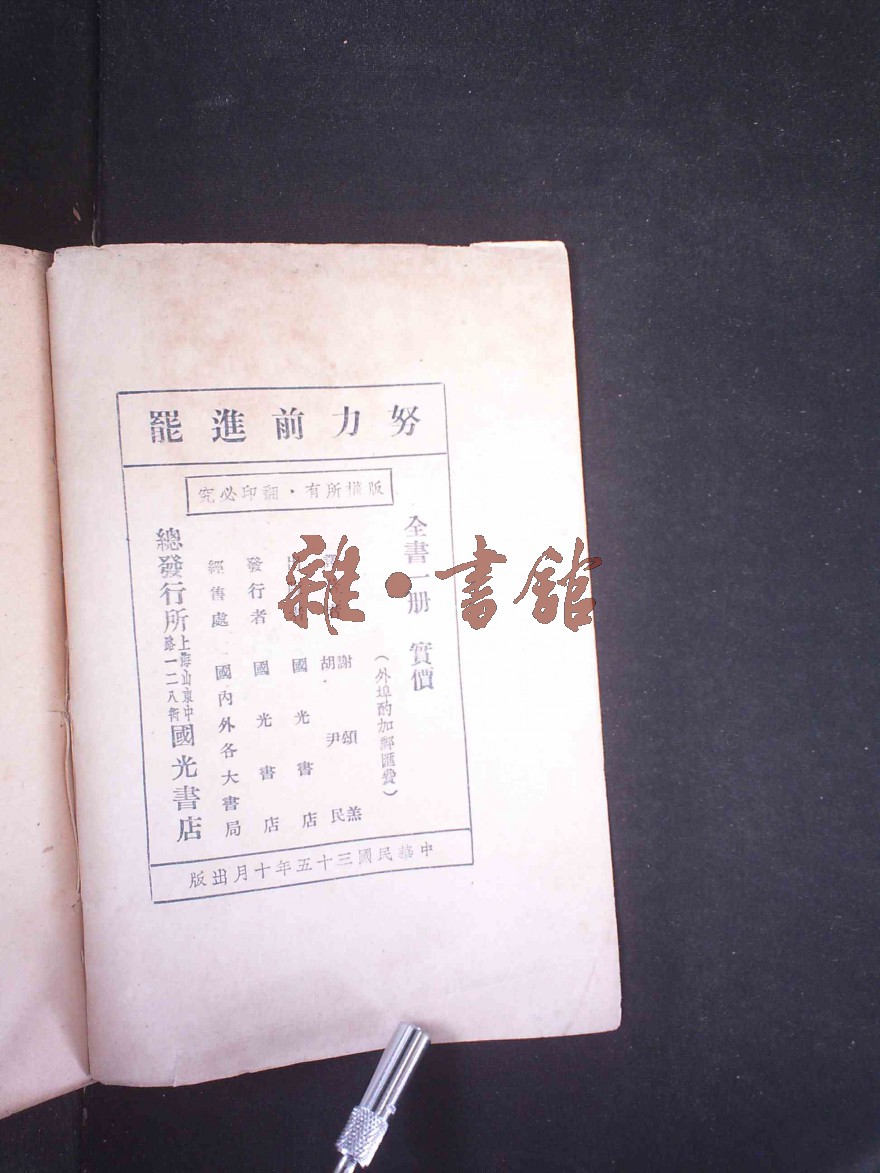 努力前進罷
版權所有·翻印必究
全書一册 實價
(外埠酌加郵匯費)
謝頌羔
胡尹民
國光書店
發行者 國光書店
經售處 國內外各大書局
總發行所 上海山東中路一二八衖 國光書店
中華民國三十五年十月出版
雜·書舘